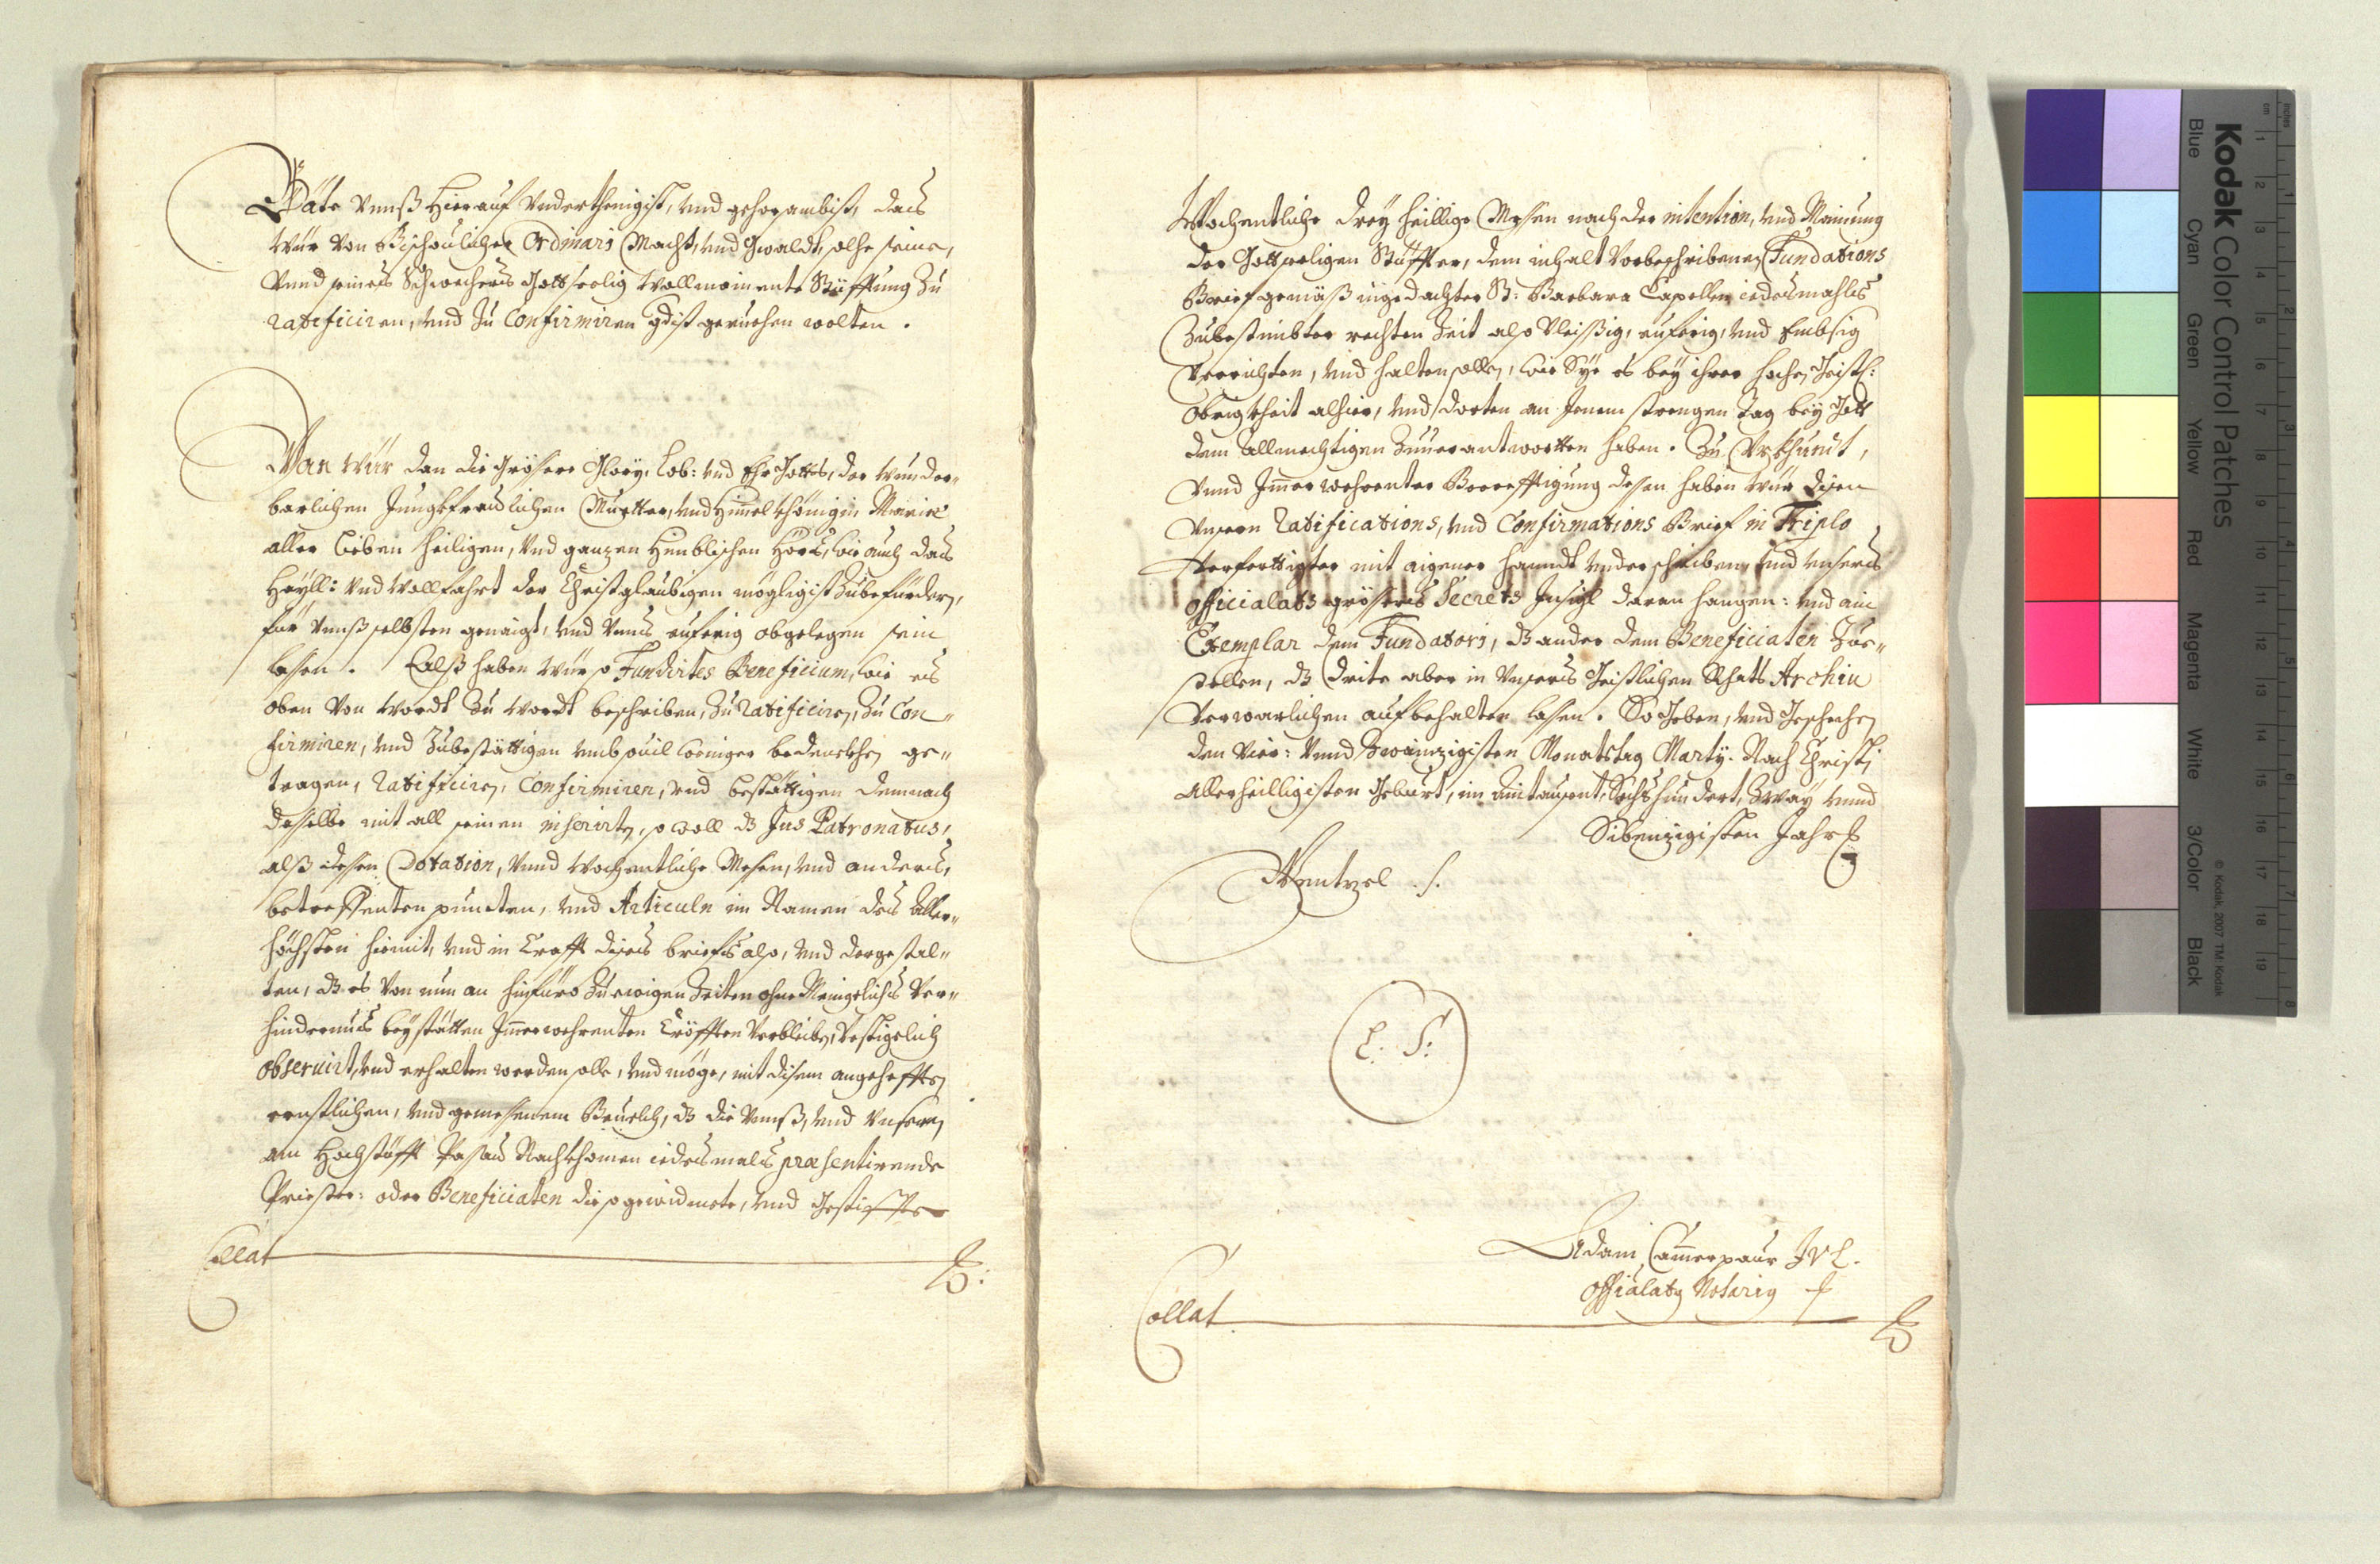 Bäte Vnnß hierauf Vnderthenigist, vnd gehorsambist, das
Wür von Bischoulicher Ordinari Macht, vnd Gwaldt, solhe seine,
Vnnd seines Schwechers Gottseelig Wollmainente Stüfftung Zu
ratificiren, vnd Zu Confirmiren gdist geruehen wolten.
Wan Wür dan die Grössere Glory, Lob: vnd Ehr Gottes, der wunder„
barlichen Jungkfraulichen Muetter, vnd Himmelkhönigin Mariæ
aller lieben heiligen, Vnd ganzen Himblischen Hörs, wie auch das
Heyll: vnd Wollfahrt der Christglaubigen mögligist Zubefürdern,
für Vnnß selbsten genaigt, vnd Vnns euferig obgelegen sein
lassen. Alß haben Wür so Fundirtes Beneficium, wie es
oben Von Wordt Zu Wordt beschriben, Zu ratificiren, Zu Con„
firmiren, vnd Zubestättigen vmb souil weniger bedenckhen ge„
tragen, ratificiren, Confirmiren, vnd bestättigen demnach
dasselbe mit all seinen inserirten, so woll dz Jus Patronatus,
alß dessen Dotation, Vnnd Wochentliche Messen, vnd anders,
betreffenten puncten, vnd Articuln im Namen des Aller„
höchsten hiemit, vnd in Crafft dises briefs also, vnd dergestal„
ten, dz es Von nun an hinfüro Zu ewigen Zeiten ohne Menigelichs Ver„
hindernus bey stätten Immerwehrenten Cröfften Verbleiben, Vestigelich
obseruirt, vnd erhalten werden solle, vnd möge, mit disem angehefften
ernstlichen, vnd gemessenem Beuelch, dz die Vnnß, vnd Vnseren
am Hochstüfft Passau Nachkhomen iedesmals præsentirende
Priester: oder Beneficiaten die so gewidmete, vnd Gestiffte
Collat
Wochentliche drey heillige Messen nach der intention, vnd Mainung
der Gottseeligen Stüffter, dem inhalt Vorbeschribenen Fundations
Brief gemäß in gedachter St: Barbara Capellen iedesmahls
Zubestimbter rechten Zeit also Vleissig, euferig, vnd Embsig
Verrichten, vnd halten sollen, wie Sye es bey ihrer hochen Geistl:
Obrigkheit alhier, vnd dorten an Jenem strengen Tag bey Gott
dem Allmechtigen Zuuerantwortten haben. Zu Vrkhundt,
Vnnd Immerwehrenter Becrefftigung dessen haben Wür disen
Vnsern Ratifications, vnd Confirmations Brief in Triplo
Verferttigter mit aigener handt vnderschriben, vnd vnsers
Officialats grössers Secrets Insigl daran hangen: vnd ain
Exemplar dem Fundatori, dz ander dem Beneficiaten Zue„
stellen, dz drite aber in Vnsers Geistlichen Rhats Archiu
Verwarlichen aufbehalten lassen. So Geben, vnd Geschechen
den Vier: Vnnd Zwainzigisten Monatstag Marty. Nach Christi
Allerheilligisten Geburt, im Aintausent, Sechshundert, Zway vnnd
Sibenzigisten Jahr
Wentzel
L: S:
Adam Camerpaur JVL.
Officialatg Notarig
Collat